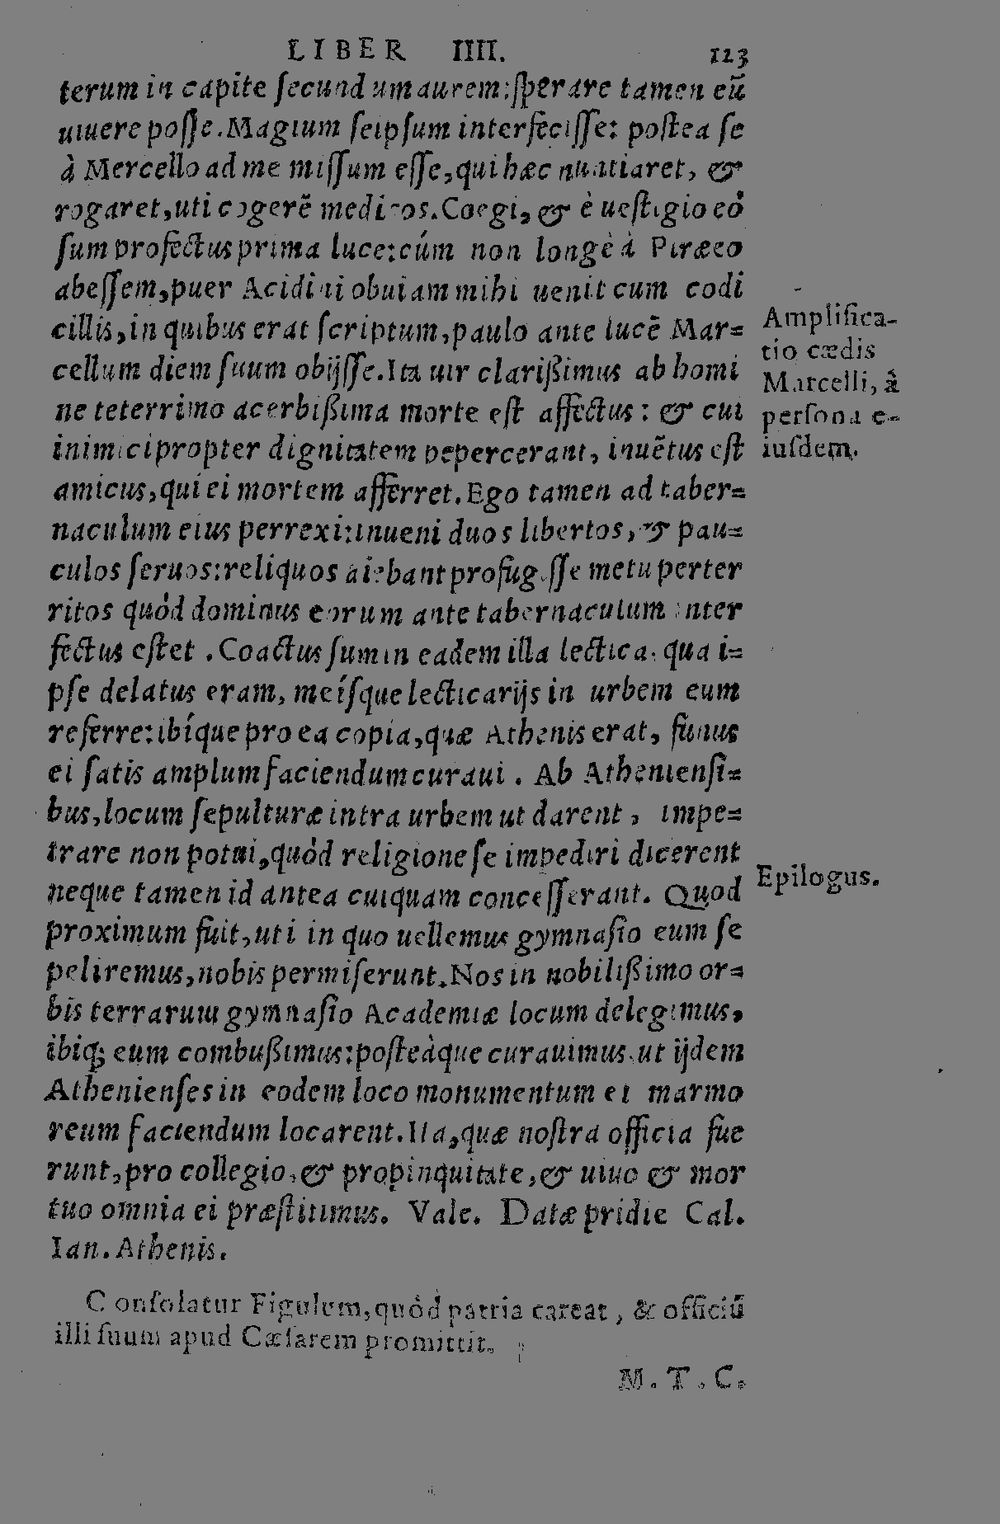 LIBER IIII. 123
terum in capite ſecundum aurem:ſperare tamen eũ
uiuere poſſe.Magium ſeipſum interfeciſſe: poſtea ſe
à Mercello ad me miſſum eſſe,qui hæc nuntiaret, &
rogaret,uti cogerẽ medicos.Coegi,& è ueſtigio eò
ſum profectus prima luce:cúm non longè à Piræeo
abeſſem,puer Acidini obuiam mihi uenit cum codi
cillis,in quibus erat ſcriptum,paulo ante lucẽ Mar=
cellum diem ſuum obijſſe.Ita uir clarißimus ab homi
ne teterrimo acerbißima morte eſt affectus: & cui
inimici propter dignitatem pepercerant, inuẽtus eſt
amicus,qui ei mortem afferret.Ego tamen ad taber=
naculum eius perrexi:inueni duos libertos,& pau=
culos ſeruos:reliquos aiebant profugiſſe metu perter
ritos quòd dominus eorum ante tabernaculum inter
fectus eſſet .Coactus ſum in eadem illa lectica, qua i=
pſe delatus eram, meíſque lecticarijs in urbem eum
referre:ibíque pro ea copia,quæ Athenis erat, funus
ei ſatis amplum faciendum curaui . Ab Athenienſi=
bus,locum ſepulturæ intra urbem ut darent , impe=
trare non potui,quòd religione ſe impediri dicerent
neque tamen id antea cuiquam conceſſerant. Quod
proximum fuit,uti in quo uellemus gymnaſio eum ſe
peliremus,nobis permiſerunt.Nos in nobilißimo or=
bis terrarum gymnaſio Academiæ locum delegimus,
ibiq; eum combußimus:poſteàque curauimus,ut ijdem
Athenienſes in eodem loco monumentum ei marmo
reum faciendum locarent.Ita,quæ noſtra officia fue
runt,pro collegio,& propinquitate,& uiuo & mor
tuo omnia ei præſtitimus. Vale. Datæ pridie Cal.
Ian.Athenis.
Amplifica-
tio cædis
Marcelli, à
perſona e-
iuſdem.
Epilogus.
Conſolatur Figulum,quòd patria careat , & officiũ
illi ſuum apud Cæſarem promittit.
M.T.C.